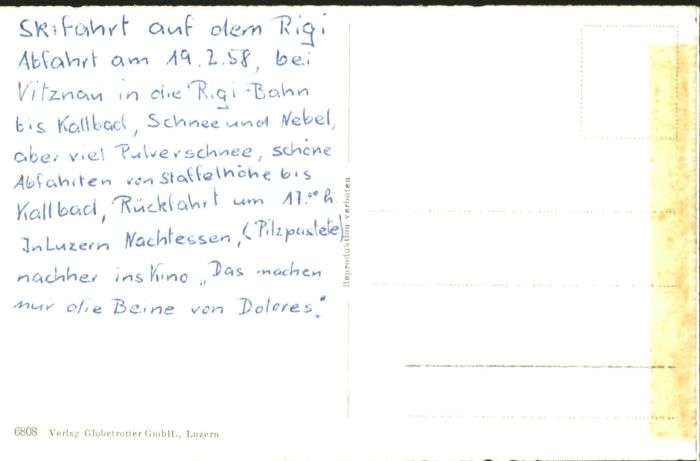 Skifahrt auf dem Rigi
Abfahrt am 19.2.58, bei
Vitznau in die Rigi-Bahn
bis Kaltbad, Schnee und Nebel,
aber viel Pulverschnee, schöne
Abfahrten von Staffelhöhe bis
Kaltbad, Rückfahrt um 17.00 h.
In Luzern Nachtessen, (Pilzpastete)
nachher ins Kino „Das machen
nur die Beine von Dolores."
Reproduktion verboten
6808 Verlag Globetrotter GmbH., Luzern